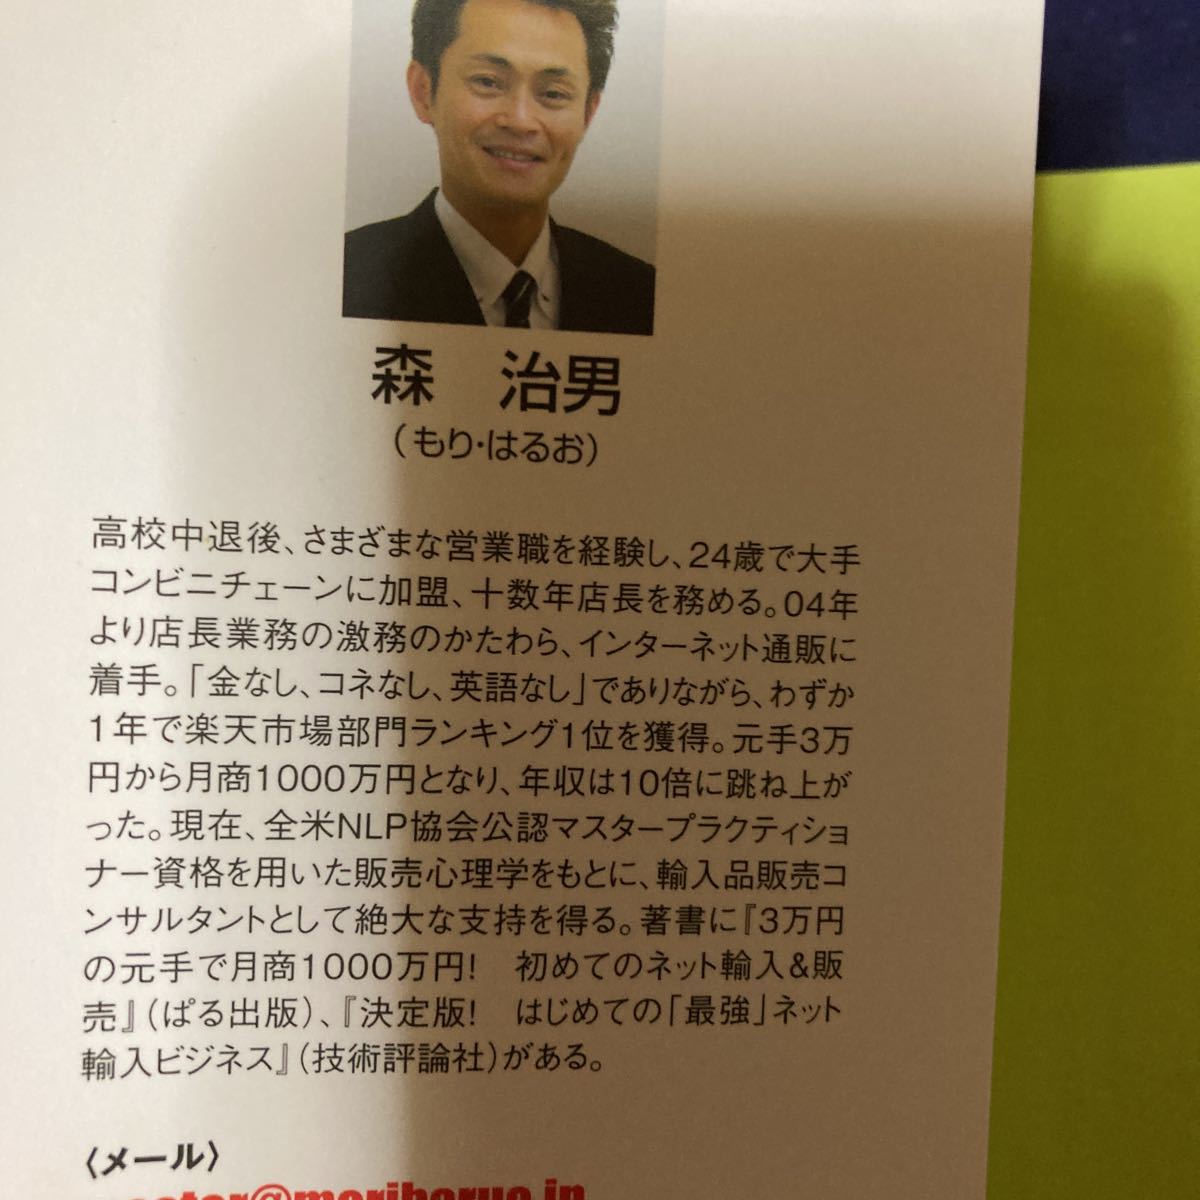 森　治男
（もり・はるお）
高校中退後、さまざまな営業職を経験し、24歳で大手
コンビニチェーンに加盟、十数年店長を務める。04年
より店長業務の激務のかたわら、インターネット通販に
着手。「金なし、コネなし、英語なし」でありながら、わずか
1年で楽天市場部門ランキング1位を獲得。元手3万
円から月商1000万円となり、年収は10倍に跳ね上が
った。現在、全米NLP協会公認マスタープラクティショ
ナー資格を用いた販売心理学をもとに、輸入品販売コ
ンサルタントとして絶大な支持を得る。著書に『3万円
の元手で月商1000万円!　初めてのネット輸入&販
売』（ぱる出版）、『決定版!　はじめての「最強」ネット
輸入ビジネス』（技術評論社）がある。
〈メール〉